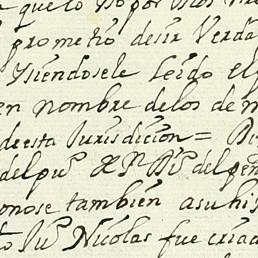 que lo hso por Dios
prometio desir Verda
Ysiendosele leido el p
en nombre de los de m
de esta Jurisdicion = Di
del pu.º del pe
onose tambien a su his
to Ju.º Nicolas fue criad